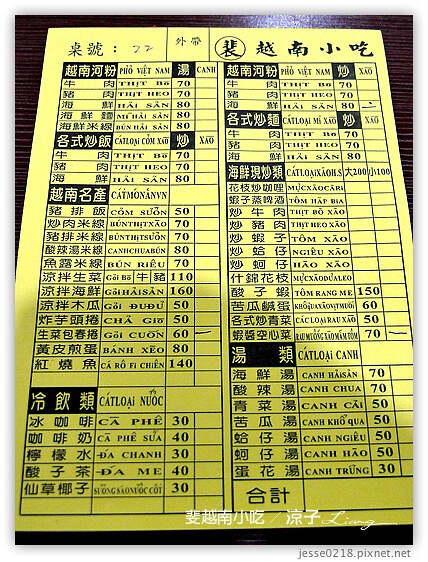 桌號: 22 外帶 裴 越南小吃
越南河粉 PHỞ VIỆT NAM 湯 CANH
牛肉 THỊT BÒ 70
豬肉 THỊT HEO 70
海鮮 HẢI SẢN 80
海鮮麵 MÌ HẢI SẢN 80
海鮮米線 BÚN HẢI SẢN 80
各式炒飯 CÁTLOẠI CƠM XÀO 炒 XÀO
牛肉 THỊT BÒ 70
豬肉 THỊT HEO 70
海鮮 HẢI SẢN 80
越南名產 CÁTMÓNĂNVN
豬排飯 CƠM SƯỜN 50
炒肉米線 BÚNTHỊTXÀO 70
豬排米線 BÚNTHỊTSƯỜN 70
酸辣湯米線 CANHCHUABÚN 80
魚露米線 BÚN RIÊU 70
涼拌生菜 GỎI BÒ 牛豬 110
涼拌海鮮 GỎIHẢISẢN 160
涼拌木瓜 GỎI ĐUĐỦ 50
炸芋頭捲 CHẢ GIÒ 50
生菜包春捲 GỎI CUỐN 60 一
黃皮煎蛋 BÁNH XÈO 80
紅燒魚 CÁ RÔ FI CHIÊN 140
冷飲類 CÁTLOẠI NƯỚC
冰咖啡 CÀ PHÊ 30
咖啡奶 CÀ PHÊ SỮA 40
檸檬水 ĐÁ CHANH 30
酸子茶 ĐÁ ME 40
仙草椰子 SƯƠNG SÁO NƯỚC CỐT 30
越南河粉 PHỞ VIỆT NAM 炒 XÀO
牛肉 THỊT BÒ 70
豬肉 THỊT HEO 70
海鮮 HẢI SẢN 80 一
各式炒麵 CÁTLOẠI MÌ XÀO 炒 XÀO
牛肉 THỊT BÒ 70
豬肉 THỊT HEO 70
海鮮 HẢI SẢN 80
海鮮現炒類 CÁTLOẠIXÀOH.S 大200 小100
花枝炒咖哩 MỰCXÀOCÀRI
蝦子蒸啤酒 TÔM HẤP BIA
炒牛肉 THỊT BÒ XÀO
炒豬肉 THỊT HEO XÀO
炒蝦子 TÔM XÀO
炒蛤仔 NGIÊU XÀO
炒蚵仔 HÀO XÀO
什錦花枝 MỰCXÀODƯALEO
酸子蝦 TÔM RANG ME 150
苦瓜鹹蛋 KHỔQUAXÀOVỊTMUỐI 60
各式炒青菜 CÁC LOẠI RAU XÀO 50
蝦醬空心菜 RAU MUỐNG XÀO MẮM TÔM 70 一
湯類 CÁTLOẠI CANH
海鮮湯 CANH HẢISẢN 70
酸辣湯 CANH CHUA 70
青菜湯 CANH CẢI 50
苦瓜湯 CANH KHỔ QUA 50
蛤仔湯 CANH NGIÊU 50
蚵仔湯 CANH HÀO 50
蛋花湯 CANH TRỨNG 30
合計
斐越南小吃 / 涼子 Liang
jesse0218.pixnet.net